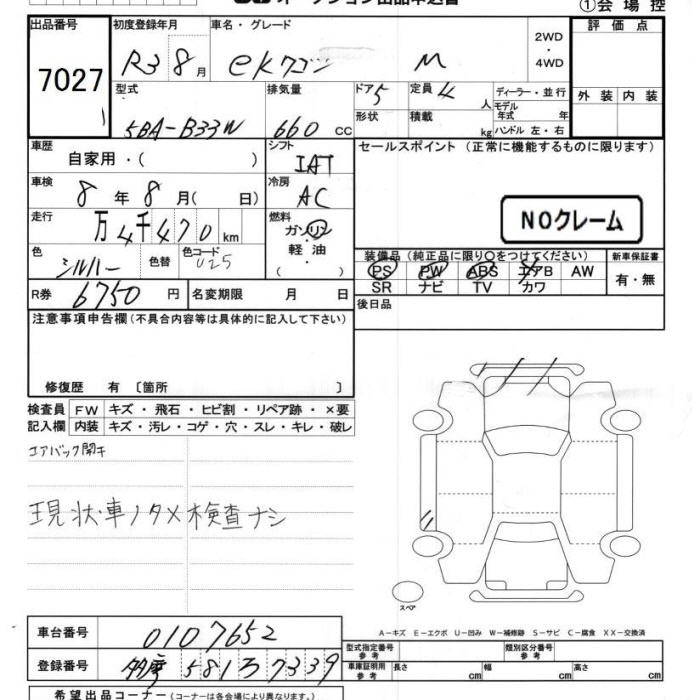 オークション出品申込書
①会場控
出品番号 初度登録年月 車名・グレード 2WD ・ 4WD 評価点
7027 R3 8月 eKワゴン M
外装 内装
型式 排気量 ドア 5 定員 4人 ディーラー・並行
5BA-B33W 660 cc 形状 積載 kg モデル年式 年
ハンドル 左・右
車歴 シフト セールスポイント (正常に機能するものに限ります)
自家用・( ) IAT
車検 冷房
8年8月( 日) AC
NOクレーム
走行 燃料
万4千470km ガソリン
軽油
( ・ )
色 シルバー 色替 色コード U25
装備品 (純正品に限り○をつけてください) 新車保証書
PS PW ABS エアB AW 有・無
SR ナビ TV カワ
R券 6750円 名変期限 月 日
後日品
注意事項申告欄 (不具合内容等は具体的に記入して下さい)
修復歴 有 〔箇所 〕
検査員 FW キズ・飛石・ヒビ割・リペア跡・×要
記入欄 内装 キズ・汚レ・コゲ・穴・スレ・キレ・破レ
エアバック開キ
現状車ノタメ検査ナシ
スペア
A-キズ E-エクボ U-凹み W-補修跡 S-サビ C-腐食 XX-交換済
車台番号 0107652
型式指定番号 参考 類別区分番号 参考
登録番号 多摩 581 ヲ 7339
車庫証明用 参考 長さ cm 幅 cm 高さ cm
希望出品コーナー (コーナーは各会場により異なります。)